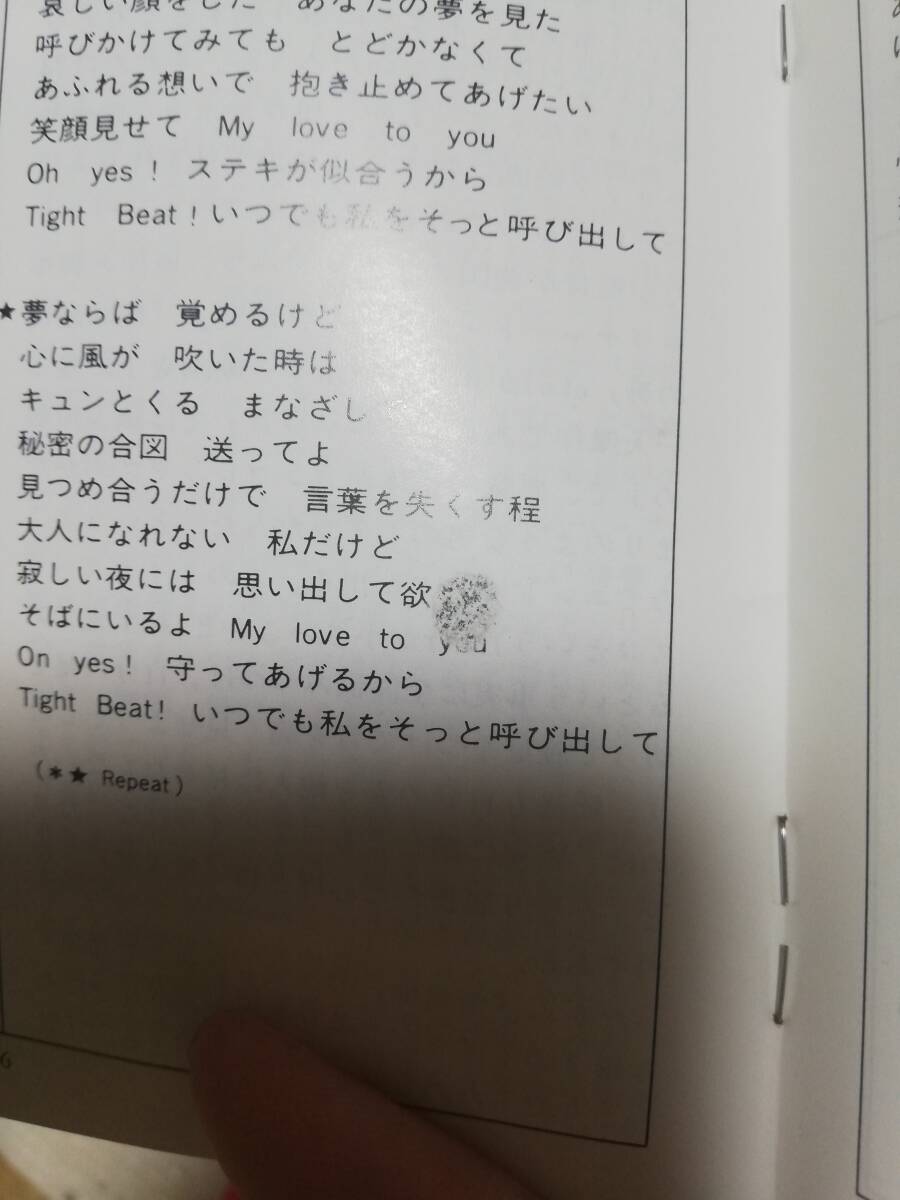 哀しい顔をした　あなたの夢を見た
呼びかけてみても　とどかなくて
あふれる想いで　抱き止めてあげたい
笑顔見せて　My love to you
Oh yes！ ステキが似合うから
Tight Beat！いつでも私をそっと呼び出して
★夢ならば　覚めるけど
心に風が　吹いた時は
キュンとくる　まなざし
秘密の合図　送ってよ
見つめ合うだけで　言葉を失くす程
大人になれない　私だけど
寂しい夜には　思い出して欲
そばにいるよ　My love to you
On yes！ 守ってあげるから
Tight Beat！ いつでも私をそっと呼び出して
（＊★ Repeat）
6